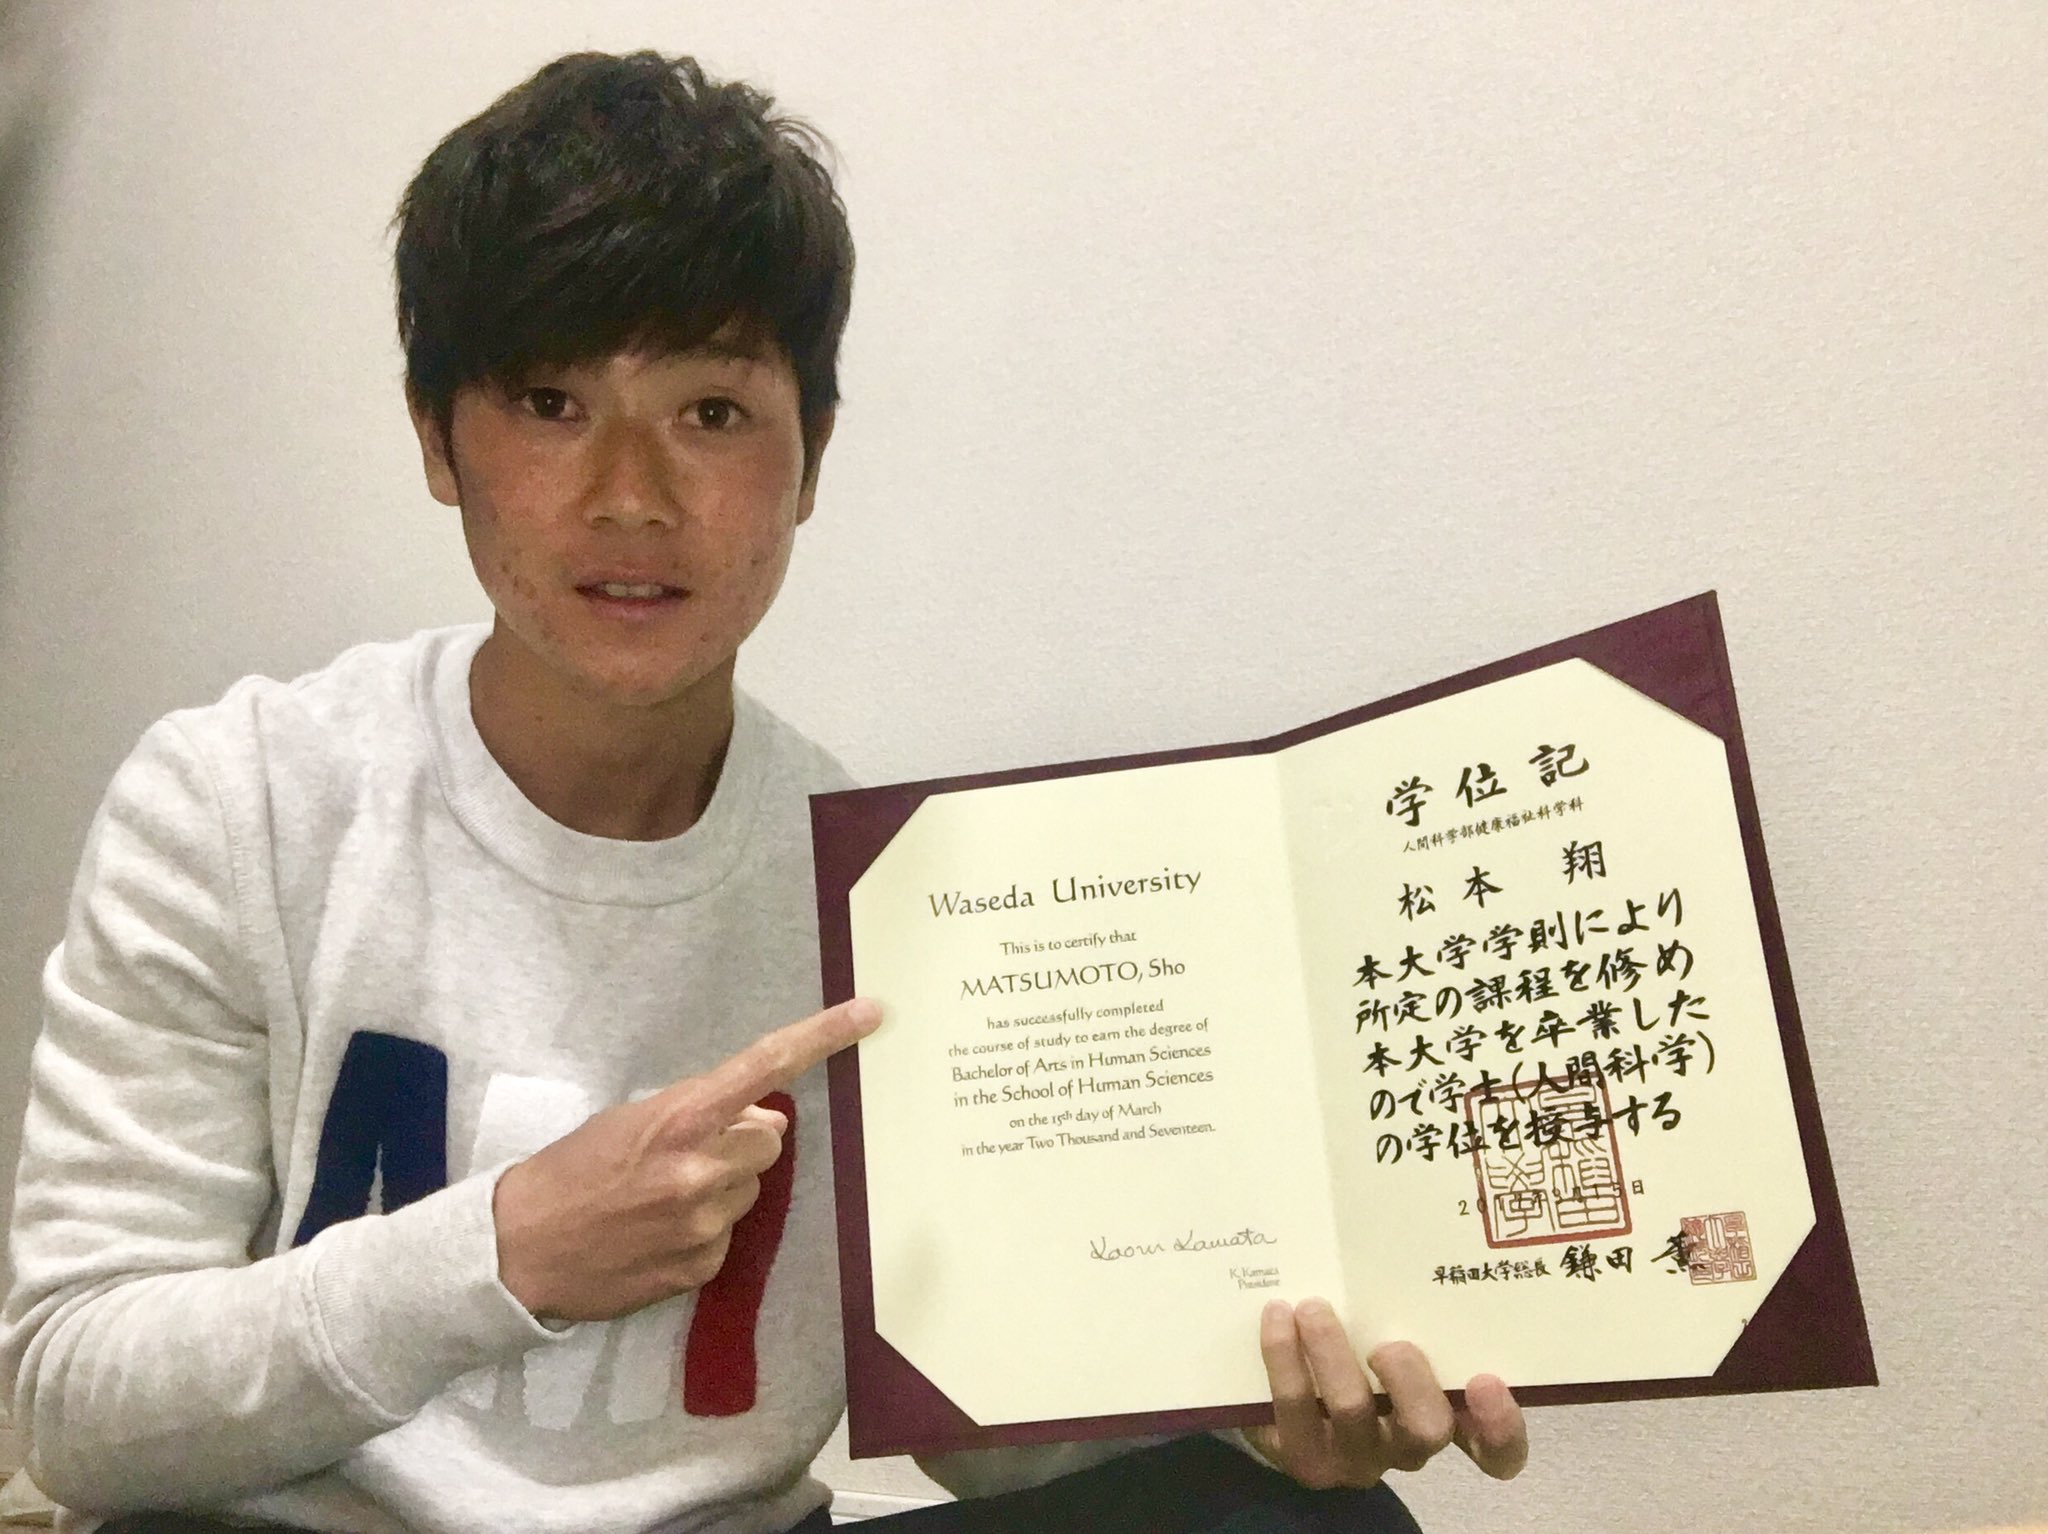 Waseda University
This is to certify that
MATSUMOTO, Sho
has successfully completed
the course of study to earn the degree of
Bachelor of Arts in Human Sciences
in the School of Human Sciences
on the 15th day of March
in the year Two Thousand and Seventeen.
Kaoru Kamata
K. Kamata
President
学位記
人間科学部健康福祉科学科
松本 翔
本大学学則により
所定の課程を修め
本大学を卒業した
ので学士(人間科学)
の学位を授与する
早稲田大学総長 鎌田 薫